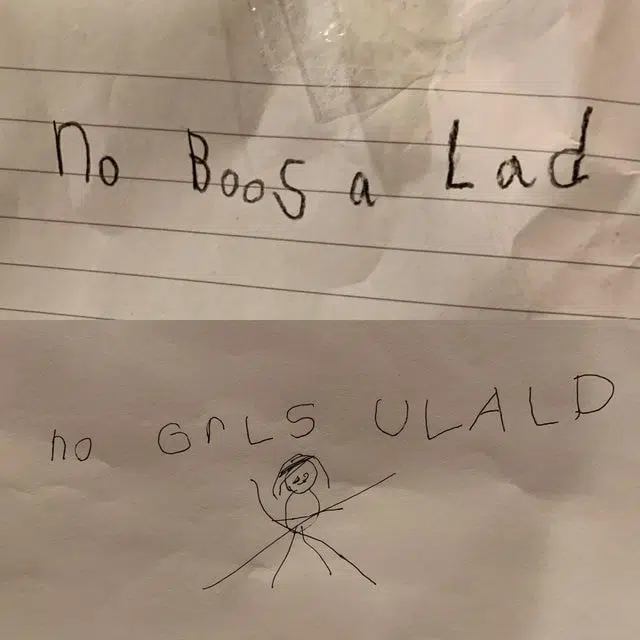 no Boos a Lad
no GrLS ULALD